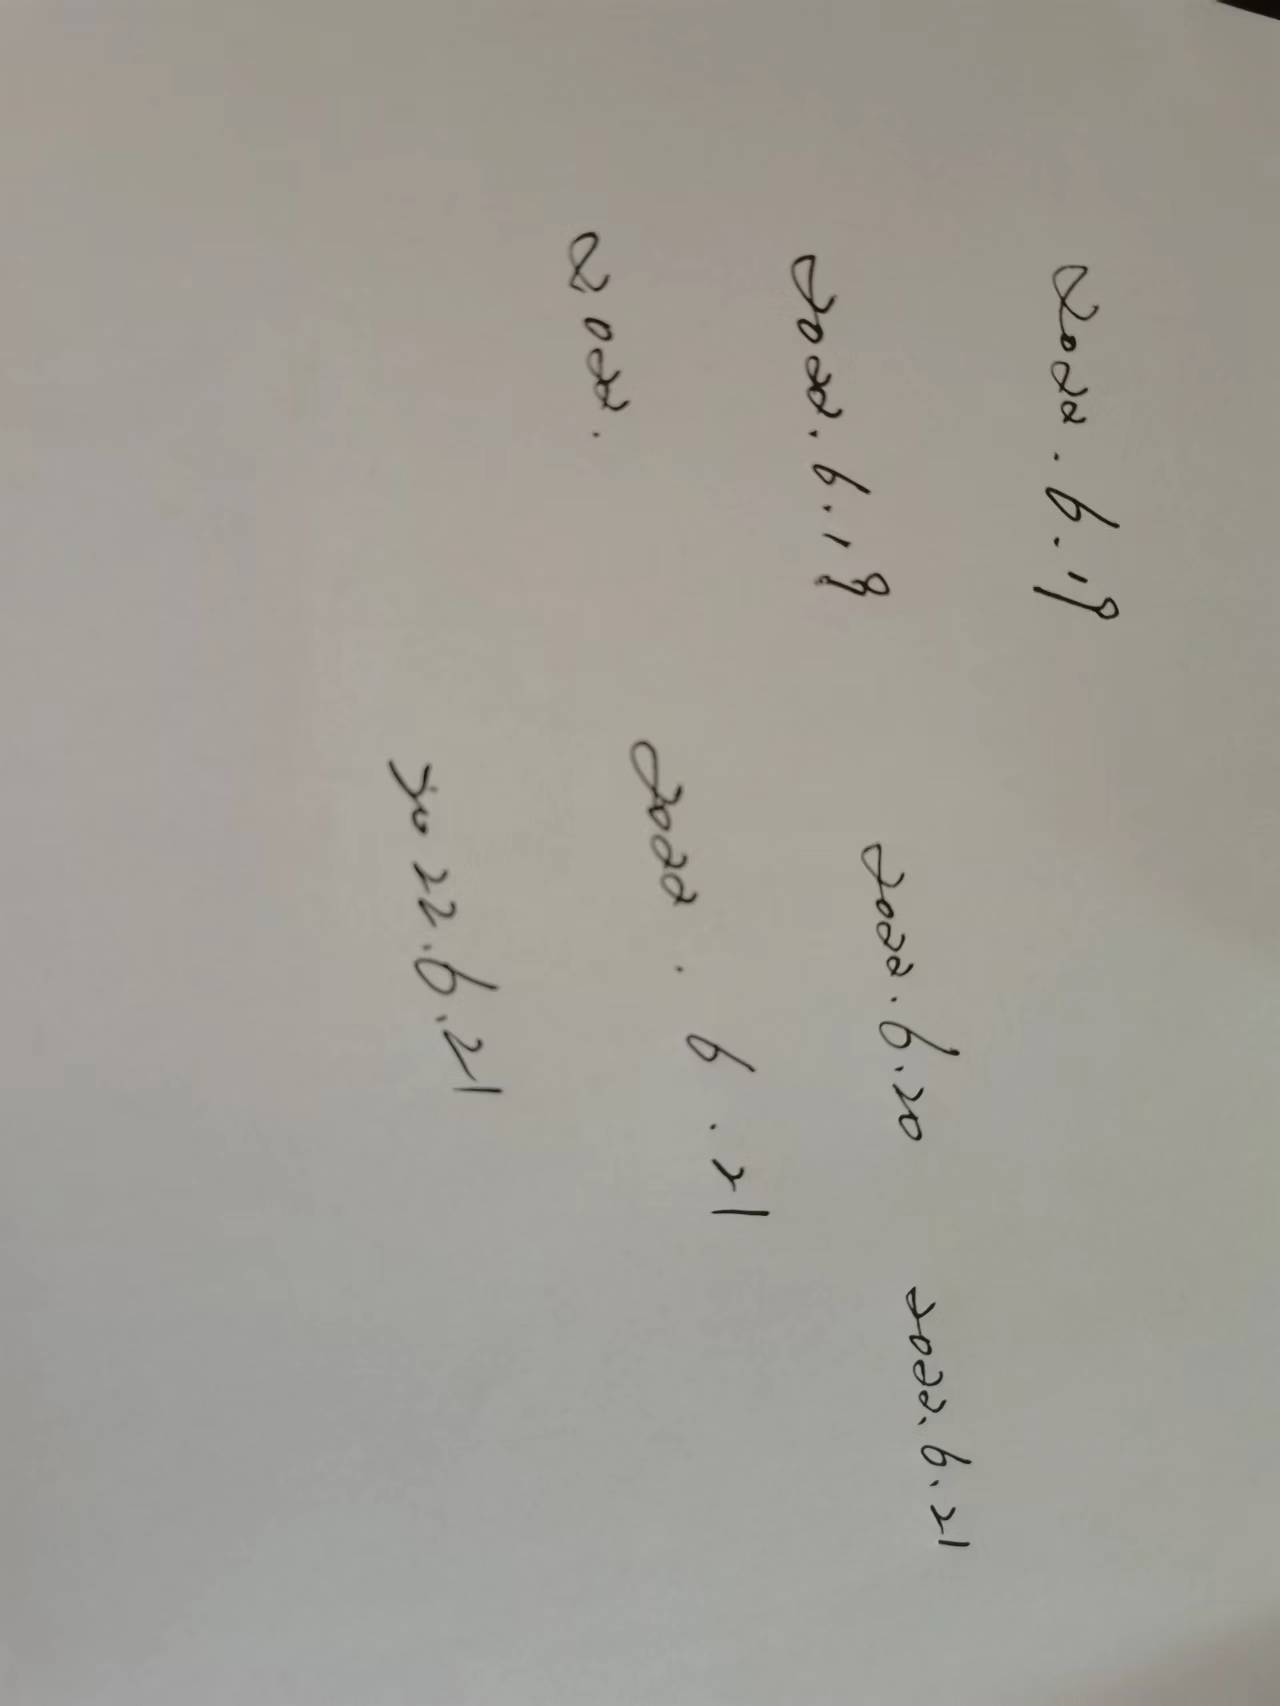 2022.6.19
2022.6.18
2022.6.20
2022.6.21
2022.
2022.6.21
2022.6.21